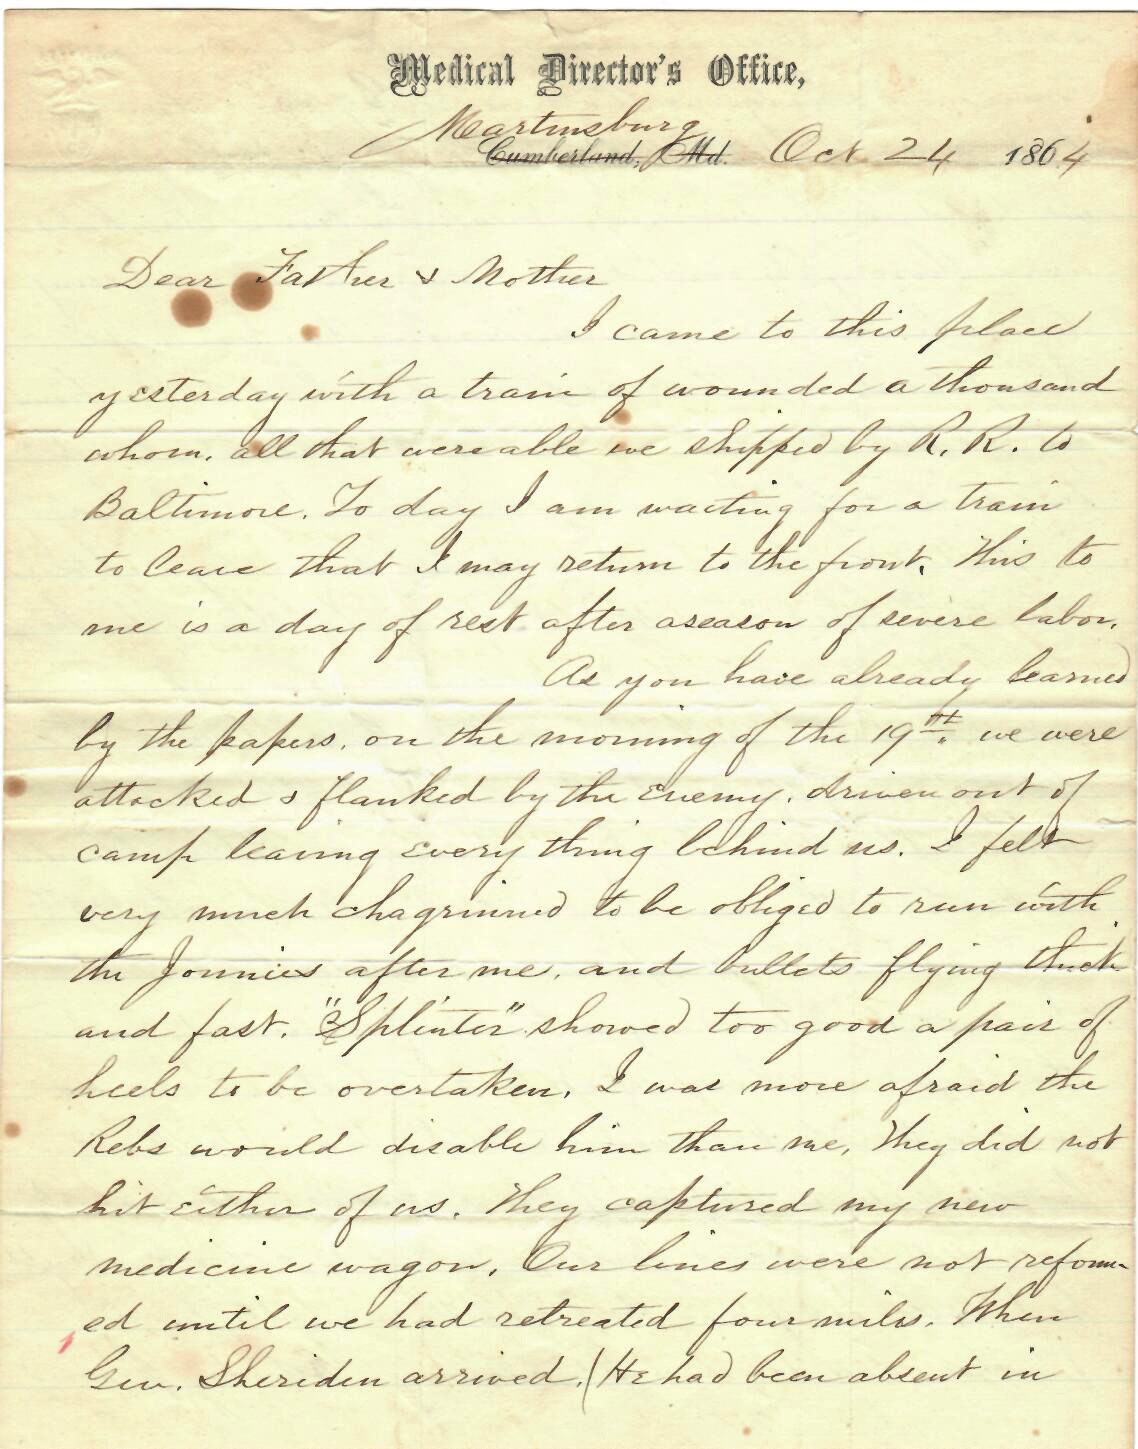 Medical Director's Office,
Martinsburg
Cumberland, Md. Oct 24 1864
Dear Father & Mother
I came to this place
yesterday with a train of wounded a thousand
whom. all that were able we shipped by R. R. to
Baltimore. To day I am waiting for a train
to leave that I may return to the front. This to
me is a day of rest after a season of severe labor.
As you have already learned
by the papers. on the morning of the 19th. we were
attacked & flanked by the enemy. driven out of
camp leaving every thing behind us. I felt
very much chagrinned to be obliged to run with
the Jonnies after me. and bullets flying thick
and fast. "Splinter" showed too good a pair of
heels to be overtaken. I was more afraid the
Rebs would disable him than me. They did not
hit either of us. They captured my new
medicine wagon. Our lines were not reform-
ed until we had retreated four miles. When
Gen. Sheriden arrived. (He had been absent in